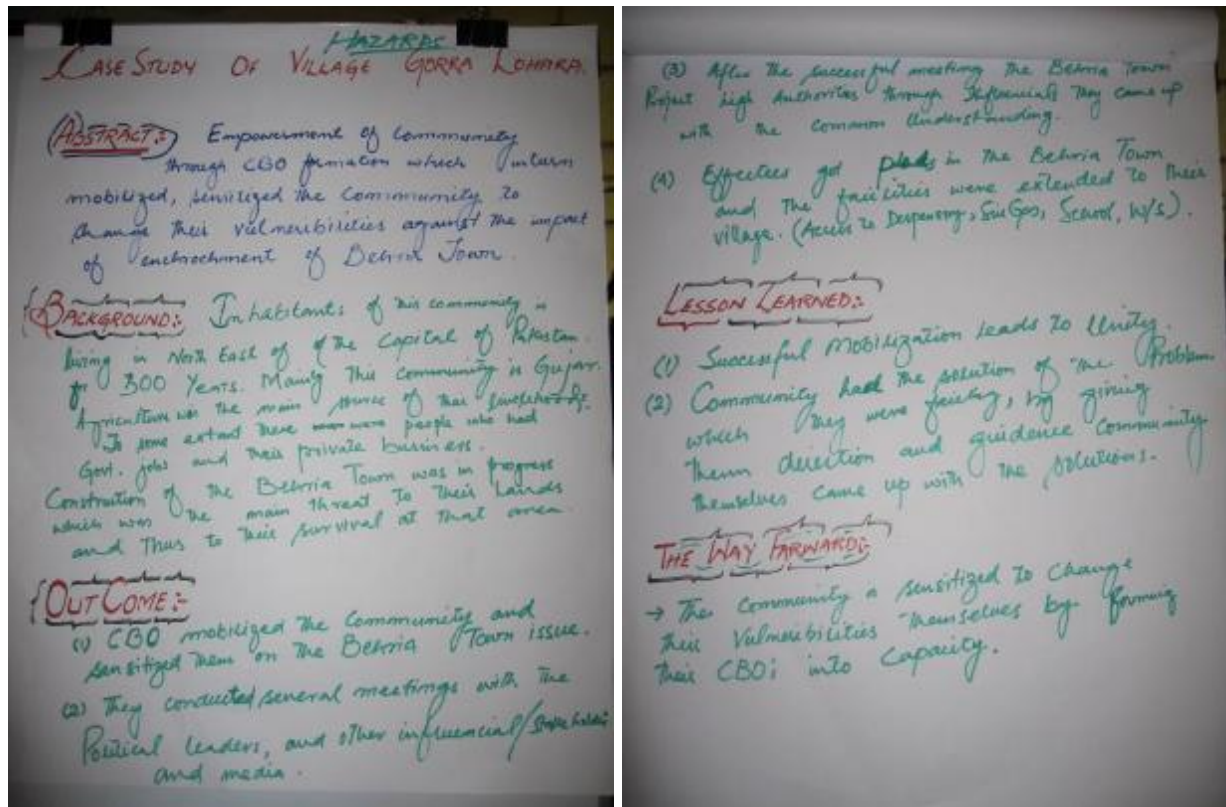 HAZARDS
CASE STUDY OF VILLAGE GORRA LOHARA.
ABSTRACT:- Empowerment of Community
through CBO formation which inturn
mobilized, sensitized the Community to
change their vulneribilities against the impact
of enchrochment of Behria Town.
BACKGROUND:- Inhabitants of this community is
living in North East of of the Capital of Pakistan.
for 300 Years. Mainly This community is Gujar.
Agriculture was the main source of their livelihoods.
To some extant there were people who had
Govt. jobs and their private business.
Constrution of the Behria Town was in progress
which was the main threat to Their Lands
and Thus to Their survival at That area.
OUT COME:-
(1) CBO mobilized the Community and
sensitized them on The Behria Town issue.
(2) They conducted several meetings with the
Political leaders, and other influencial/stakeholders
and media.
(3) After the successful meeting the Behria Town
Project high Authorities through Influencials They came up
with the common Understanding.
(4) Effectees got plots in The Behria Town
and The facilities were extended to their
village. (Access to Despensry, Sui Gas, School, W/S).
LESSON LEARNED:-
(1) Successful Mobilization leads to Unity.
(2) Community had the solution of the Problem
which They were facing, by giving
Them direction and guidence Community
themselves came up with the solutions.
THE WAY FARWARD:-
→ The Community is sensitized to Change
their Vulneribilities Themselves by forming
their CBO; into Capacity.